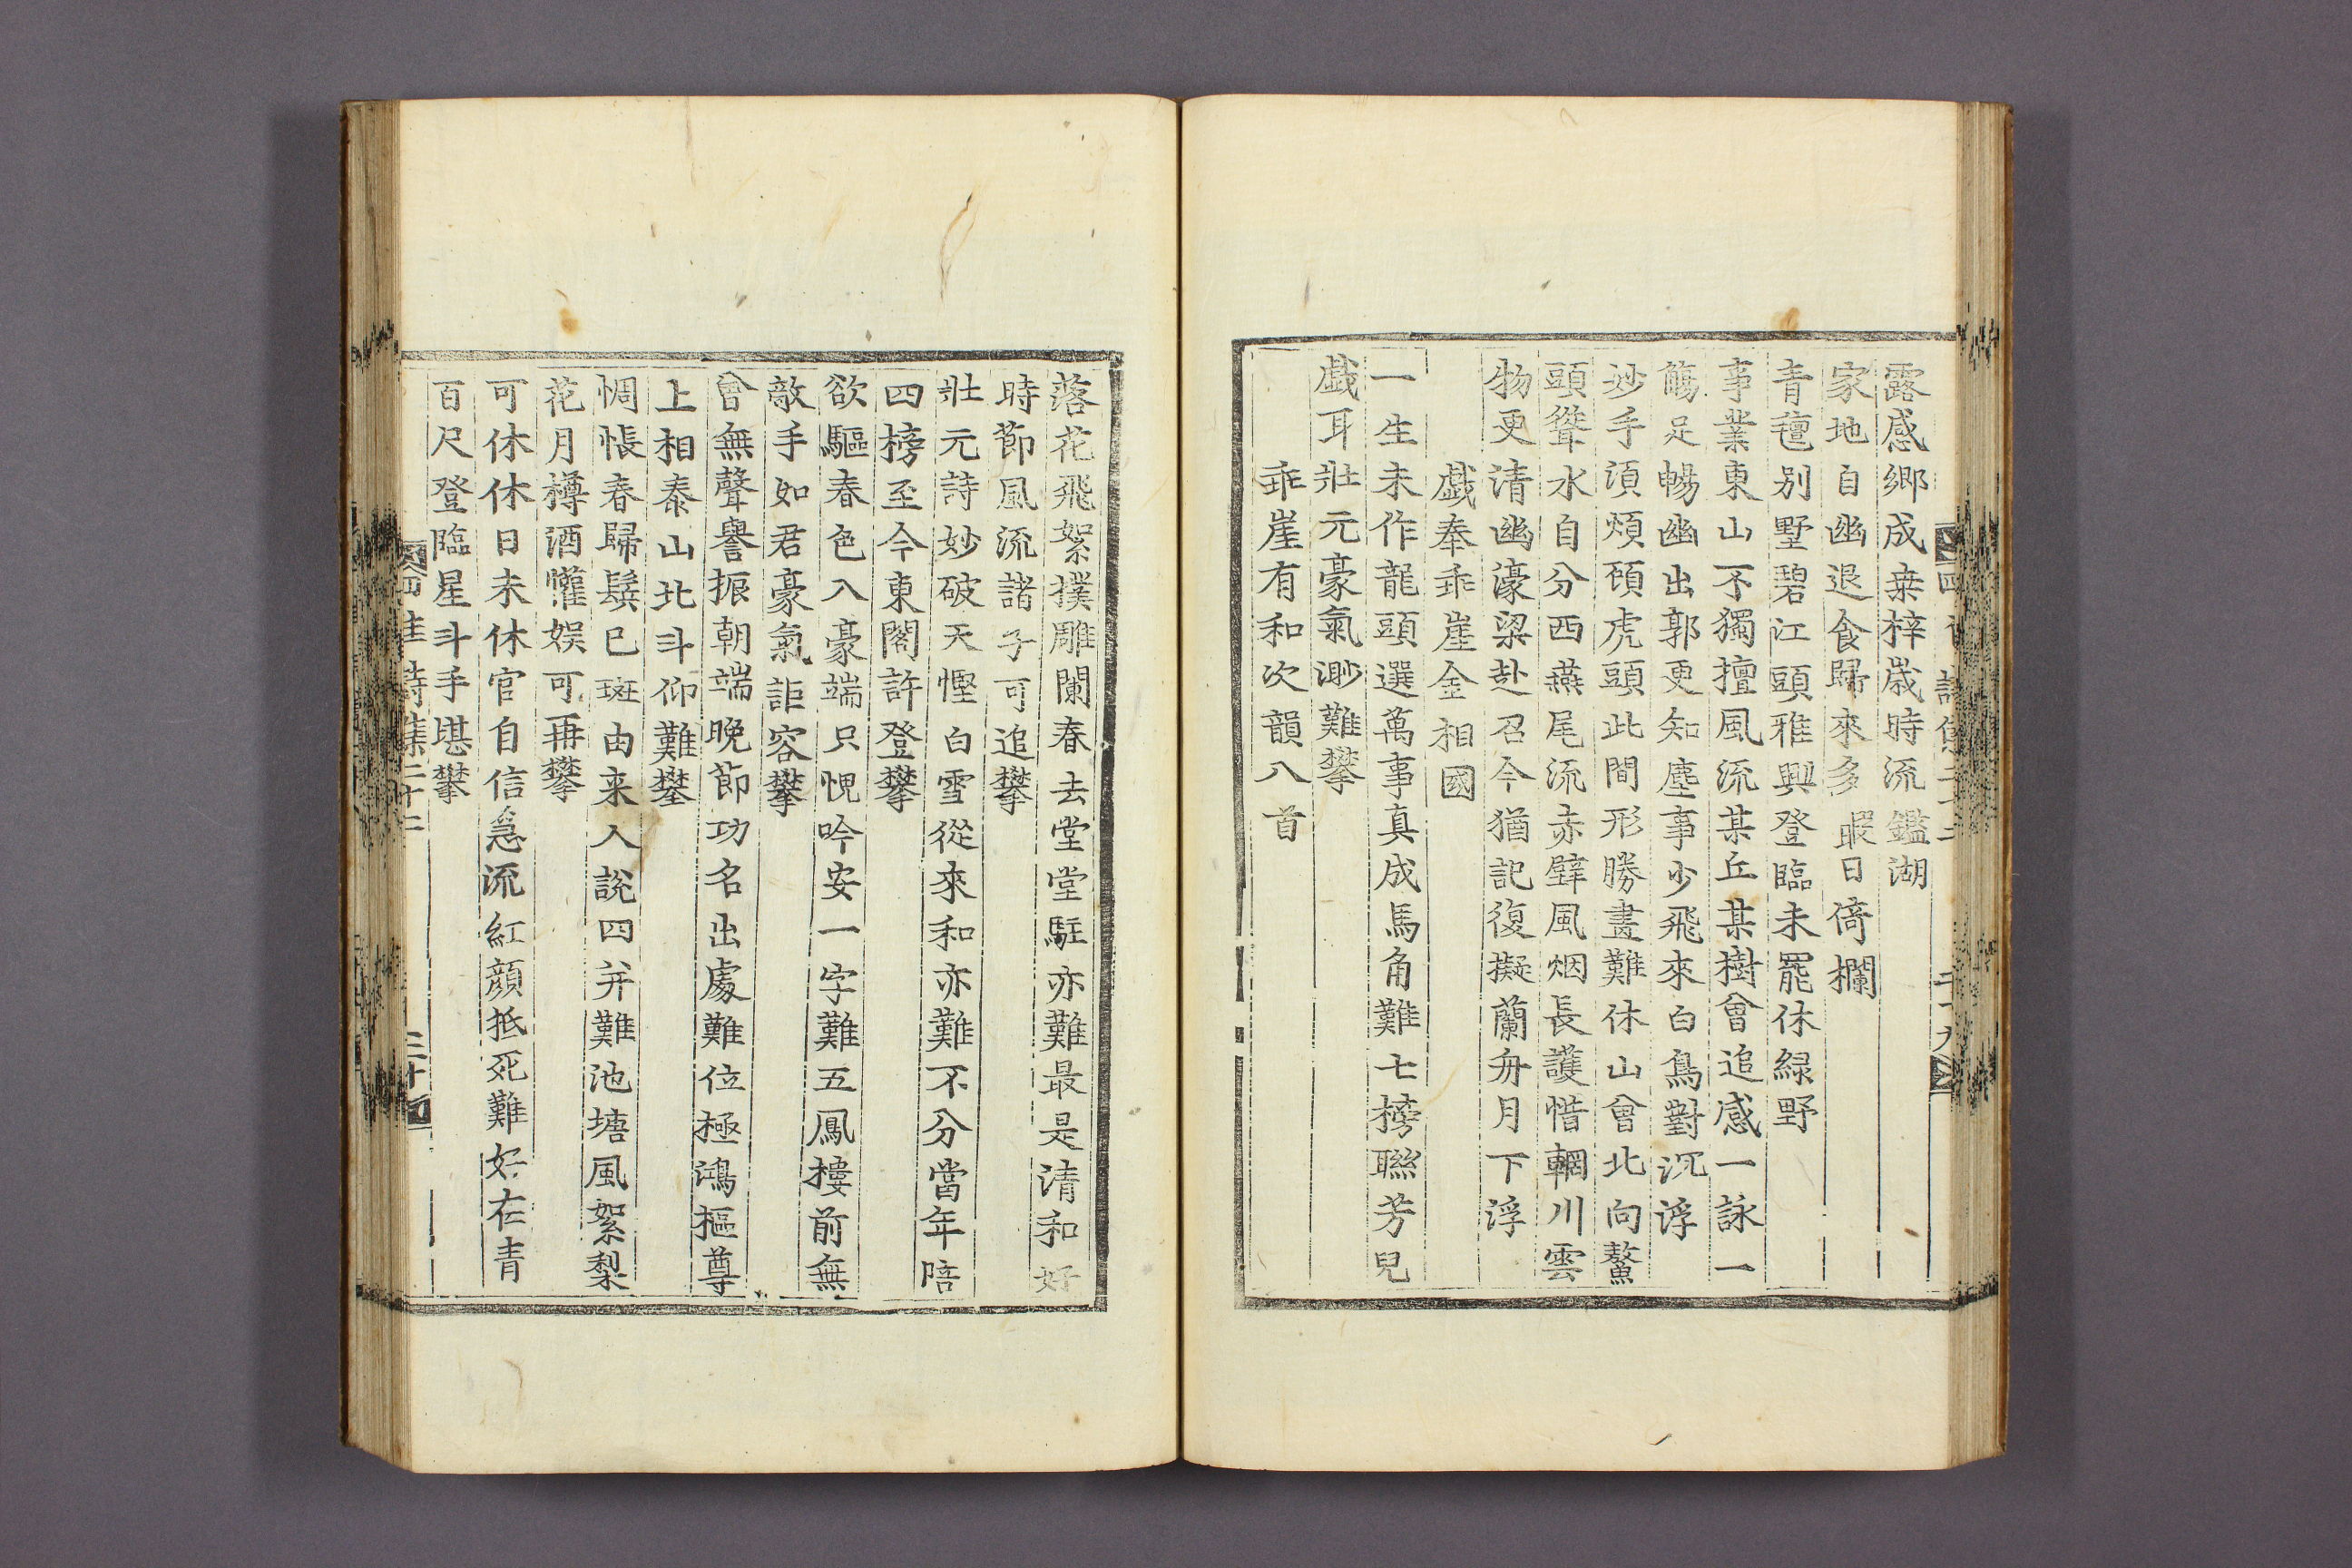 露感鄉成桒梓歲時流鑑湖
家地自幽退食歸來多暇日倚欄
青氊別墅碧江頭雅興登臨未罷休緑野
事業東山不獨擅風流某丘某樹曾追感一詠一
觴足暢幽出郭更知塵事少飛來白鳥對沉浮
妙手湏煩頋虎頭此間形勝畫難休山曾北向鰲
頭聳水自分西燕尾流赤壁風烟長護惜輞川雲
物更清幽濠梁赴召今猶記復擬蘭舟月下浮
戯奉乖崖金相國
一生未作龍頭選萬事真成馬角難七榜聯芳兒
戯耳壯元豪氣渺難攀
乖崖有和次韻八首
落花飛絮撲雕闌春去堂堂駐亦難最是清和好
時節風流諸子可追攀
壯元詩妙破天慳白雪從來和亦難不分當年陪
四榜至今東閣許登攀
欲驅春色入豪端只愧吟安一字難五鳳樓前無
敵手如君豪氣詎容攀
曾無聲譽振朝端晩節功名出處難位極鴻樞尊
上相泰山北斗仰難攀
惆悵春歸鬂已斑由来人說四并難池塘風絮梨
花月樽酒懽娱可再攀
可休休日未休官自信急流紅顔抵死難好在青
百尺登臨星斗手堪攀